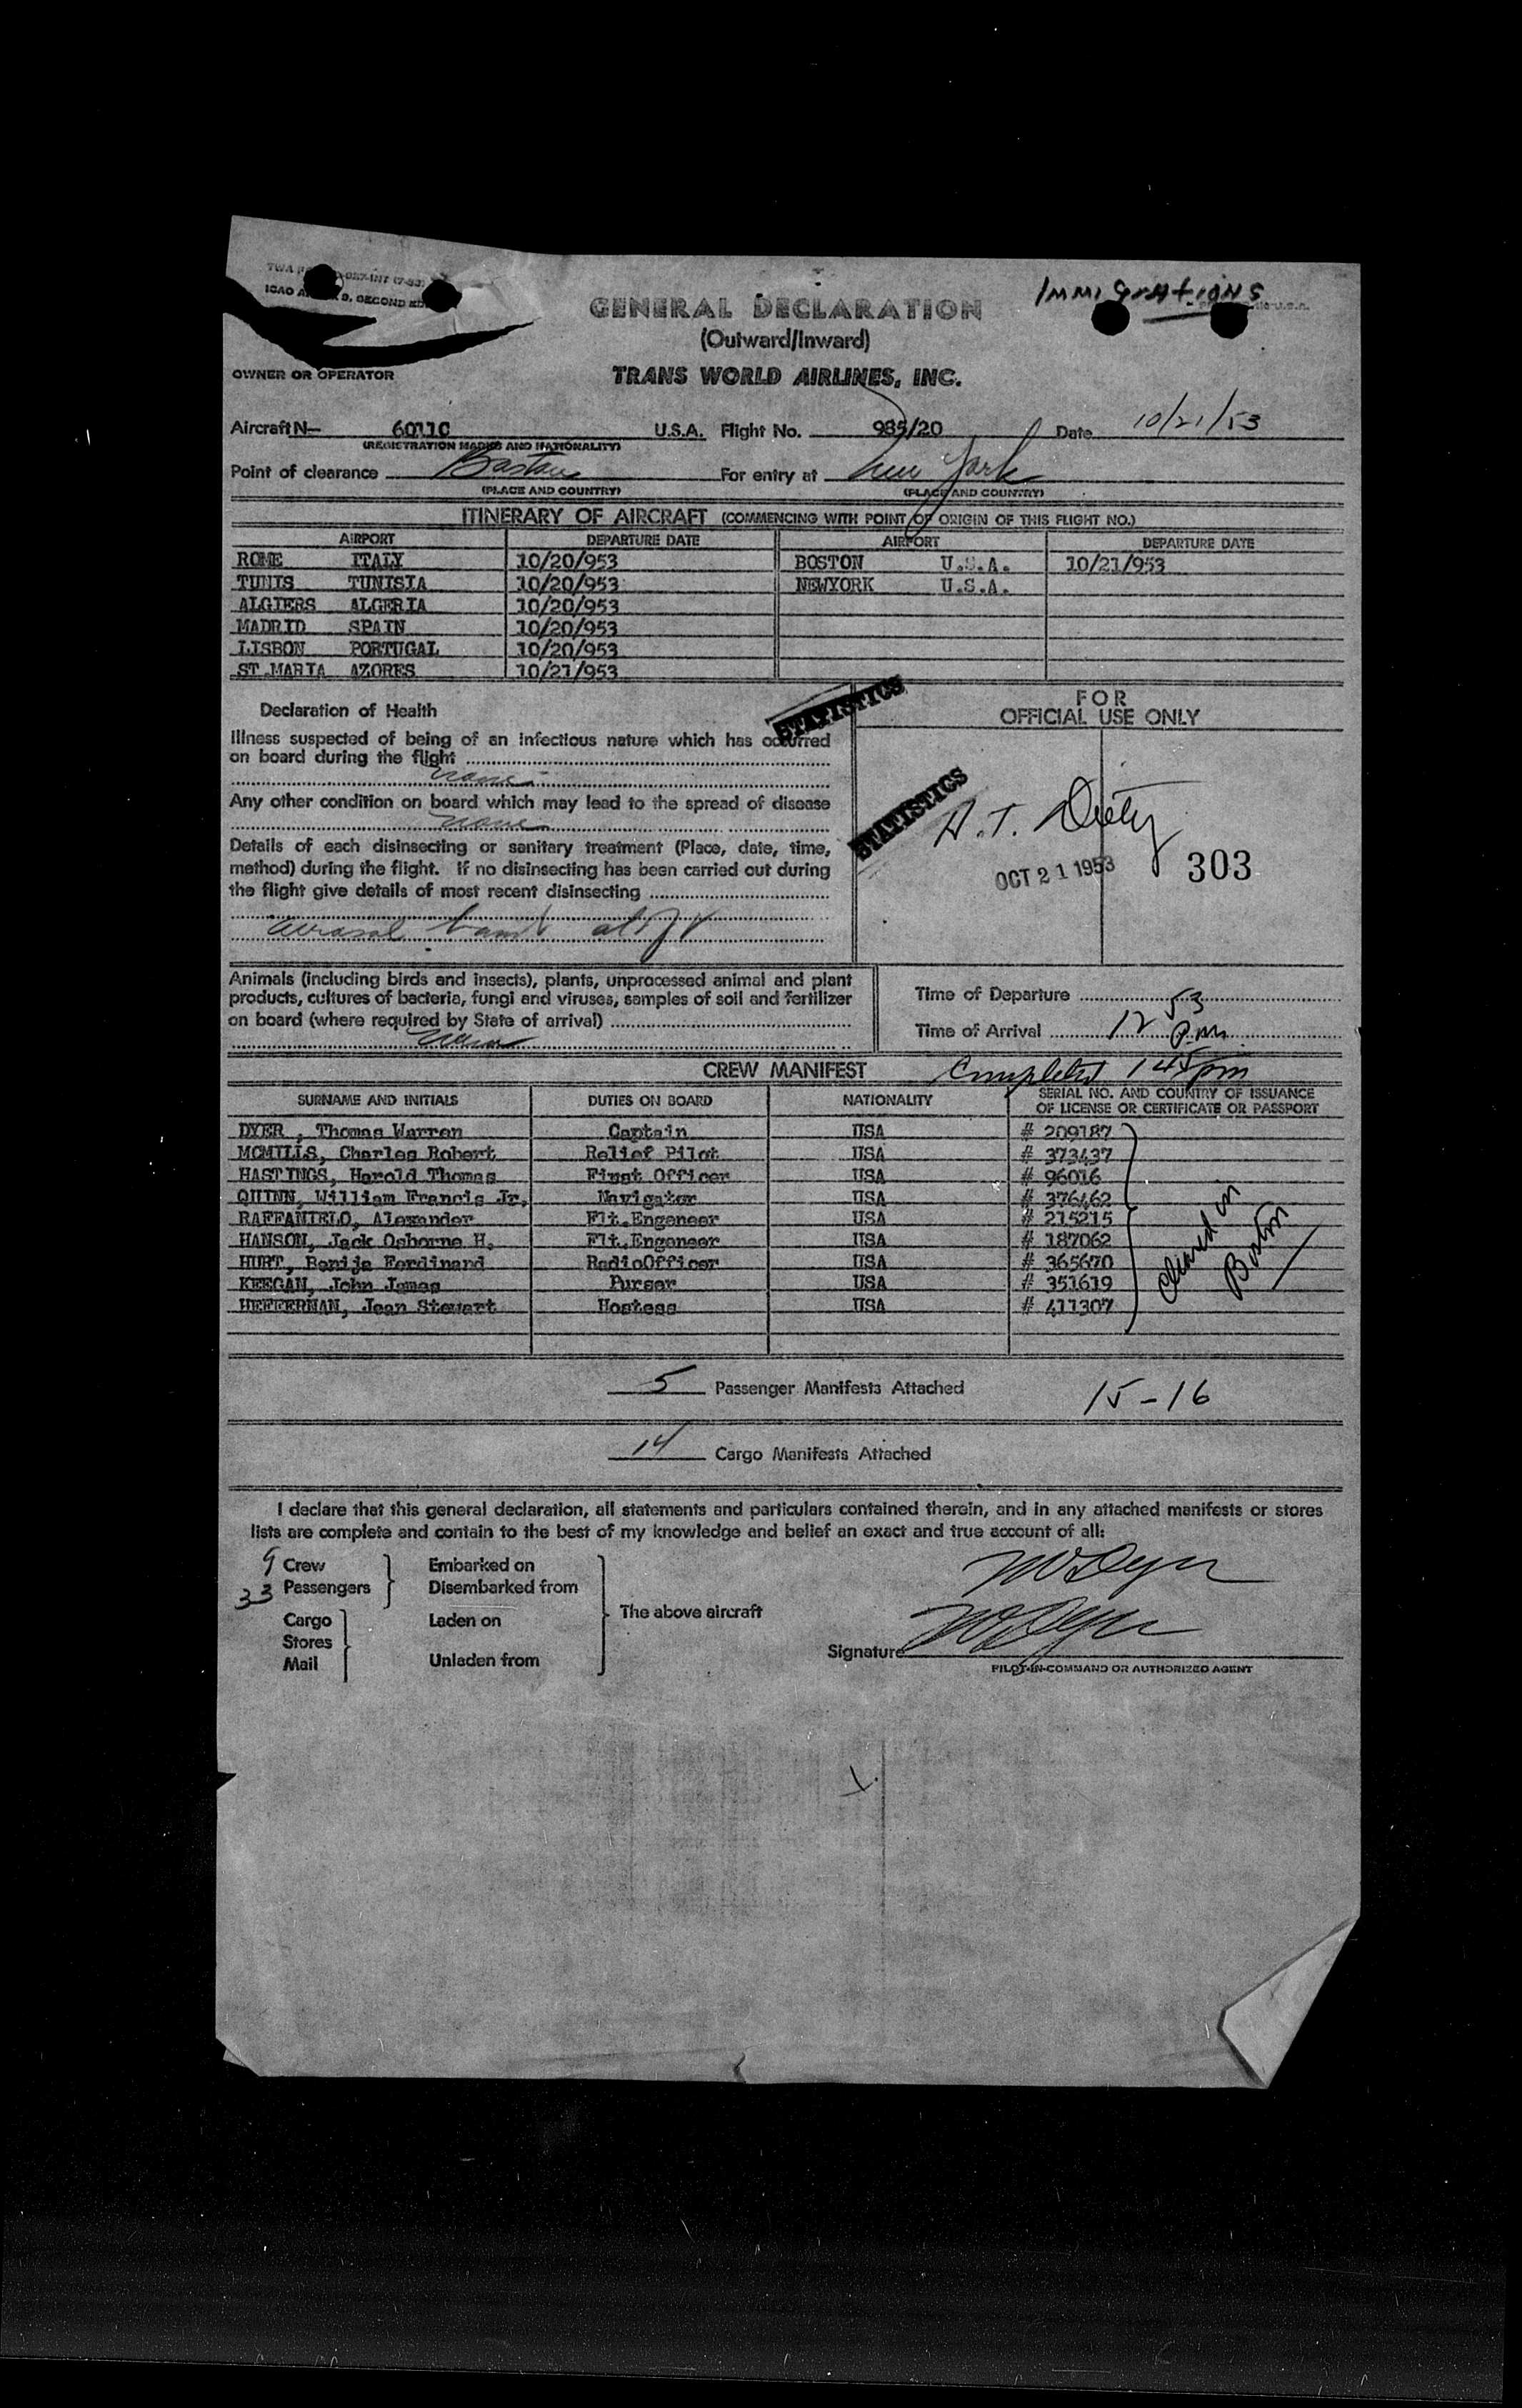 ICAO
SECOND
IMMIGRATIONS
GENERAL DECLARATION
(Outward/Inward)
OWNER OR OPERATOR
TRANS WORLD AIRLINES, INC.
Aircraft N— 6011C U.S.A. Flight No. 985/20 Date 10/21/53
(REGISTRATION MARKS AND NATIONALITY)
Point of clearance Boston For entry at New York
(PLACE AND COUNTRY) (PLACE AND COUNTRY)
ITINERARY OF AIRCRAFT (COMMENCING WITH POINT OF ORIGIN OF THIS FLIGHT NO.)
AIRPORT DEPARTURE DATE AIRPORT DEPARTURE DATE
ROME ITALY 10/20/953 BOSTON U.S.A. 10/21/953
TUNIS TUNISIA 10/20/953 NEWYORK U.S.A.
ALGIERS ALGERIA 10/20/953
MADRID SPAIN 10/20/953
LISBON PORTUGAL 10/20/953
ST.MARIA AZORES 10/21/953
STATISTICS
Declaration of Health
FOR
OFFICIAL USE ONLY
Illness suspected of being of an infectious nature which has occurred
on board during the flight
none
Any other condition on board which may lead to the spread of disease
none
STATISTICS
Details of each disinsecting or sanitary treatment (Place, date, time,
method) during the flight. If no disinsecting has been carried out during
the flight give details of most recent disinsecting
OCT 21 1953
303
Animals (including birds and insects), plants, unprocessed animal and plant
products, cultures of bacteria, fungi and viruses, samples of soil and fertilizer
on board (where required by State of arrival)
Time of Departure
Time of Arrival 12 53 p.m.
CREW MANIFEST Completed 145 pm
SURNAME AND INITIALS DUTIES ON BOARD NATIONALITY SERIAL NO. AND COUNTRY OF ISSUANCE
OF LICENSE OR CERTIFICATE OR PASSPORT
DYER , Thomas Warren Captain USA # 209187
MCMILLS, Charles Robert Relief Pilot USA # 373437
HASTINGS, Harold Thomas First Officer USA # 96016
QUINN, William Francis Jr. Navigator USA # 376462
RAFFANIELO, Alexander Flt.Engeneer USA # 215215
HANSON, Jack Osborne H. Flt.Engeneer USA # 187062
HURT, Benija Ferdinand RadioOfficer USA # 365670
KEEGAN, John James Purser USA # 351619
HEFFERNAN, Jean Stewart Hostess USA # 411307
Cleared in
Boston
5 Passenger Manifests Attached 15-16
14 Cargo Manifests Attached
I declare that this general declaration, all statements and particulars contained therein, and in any attached manifests or stores
lists are complete and contain to the best of my knowledge and belief an exact and true account of all:
9 Crew Embarked on
33 Passengers Disembarked from
Cargo Laden on The above aircraft
Stores
Mail Unladen from
Signature
PILOT-IN-COMMAND OR AUTHORIZED AGENT